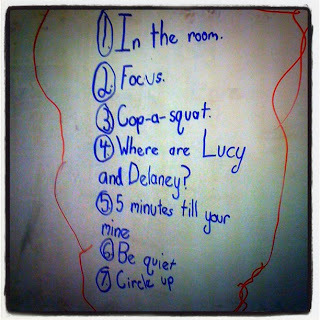 1. In the room.
2. Focus.
3 Cop-a-squat.
4. Where are Lucy
and Delaney?
5 5 minutes till your
mine
6 Be quiet
7. Circle up